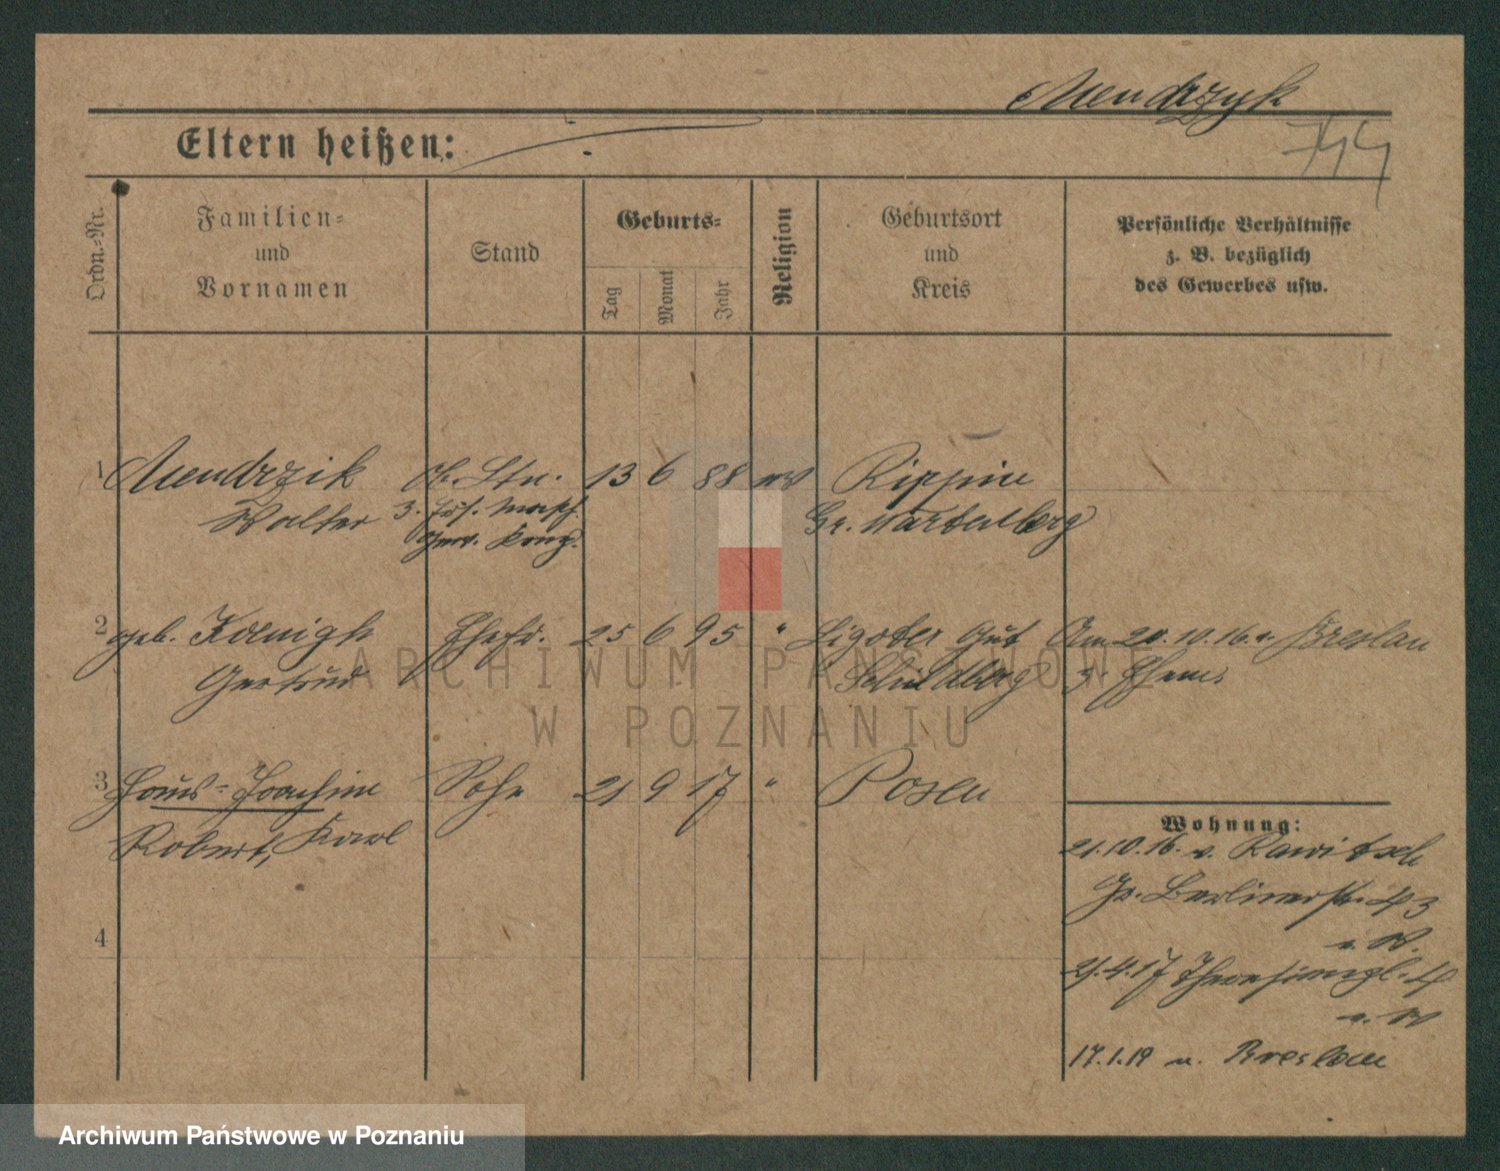 Mendrzyk
744
Eltern heißen:
Ordn.-Nr.
Familien-
und
Vornamen
Stand
Geburts-
Tag
Monat
Jahr
Religion
Geburtsort
und
Kreis
Persönliche Verhältnisse
z. B. bezüglich
des Gewerbes usw.
1 Mendrzik Ob. Ltn. 13 6 88 Rippin
Walter 3. Gr. Wartenberg
2 geb. Koenigk Ehefr. 25 6 95 " Ligoter Gut Am 20.10.16 v. Breslau
Gertrud Schildberg z. Ehem.
3 Hans-Joachim Sohn 21 9 17 " Posen
Robert, Karl
Wohnung:
21.10.16. v. Rawitsch
Gr. Berlinerstr. 43
4
21.4.17
17.1.19 n. Breslau
ARCHIWUM PAŃSTWOWE
W POZNANIU
Archiwum Państwowe w Poznaniu